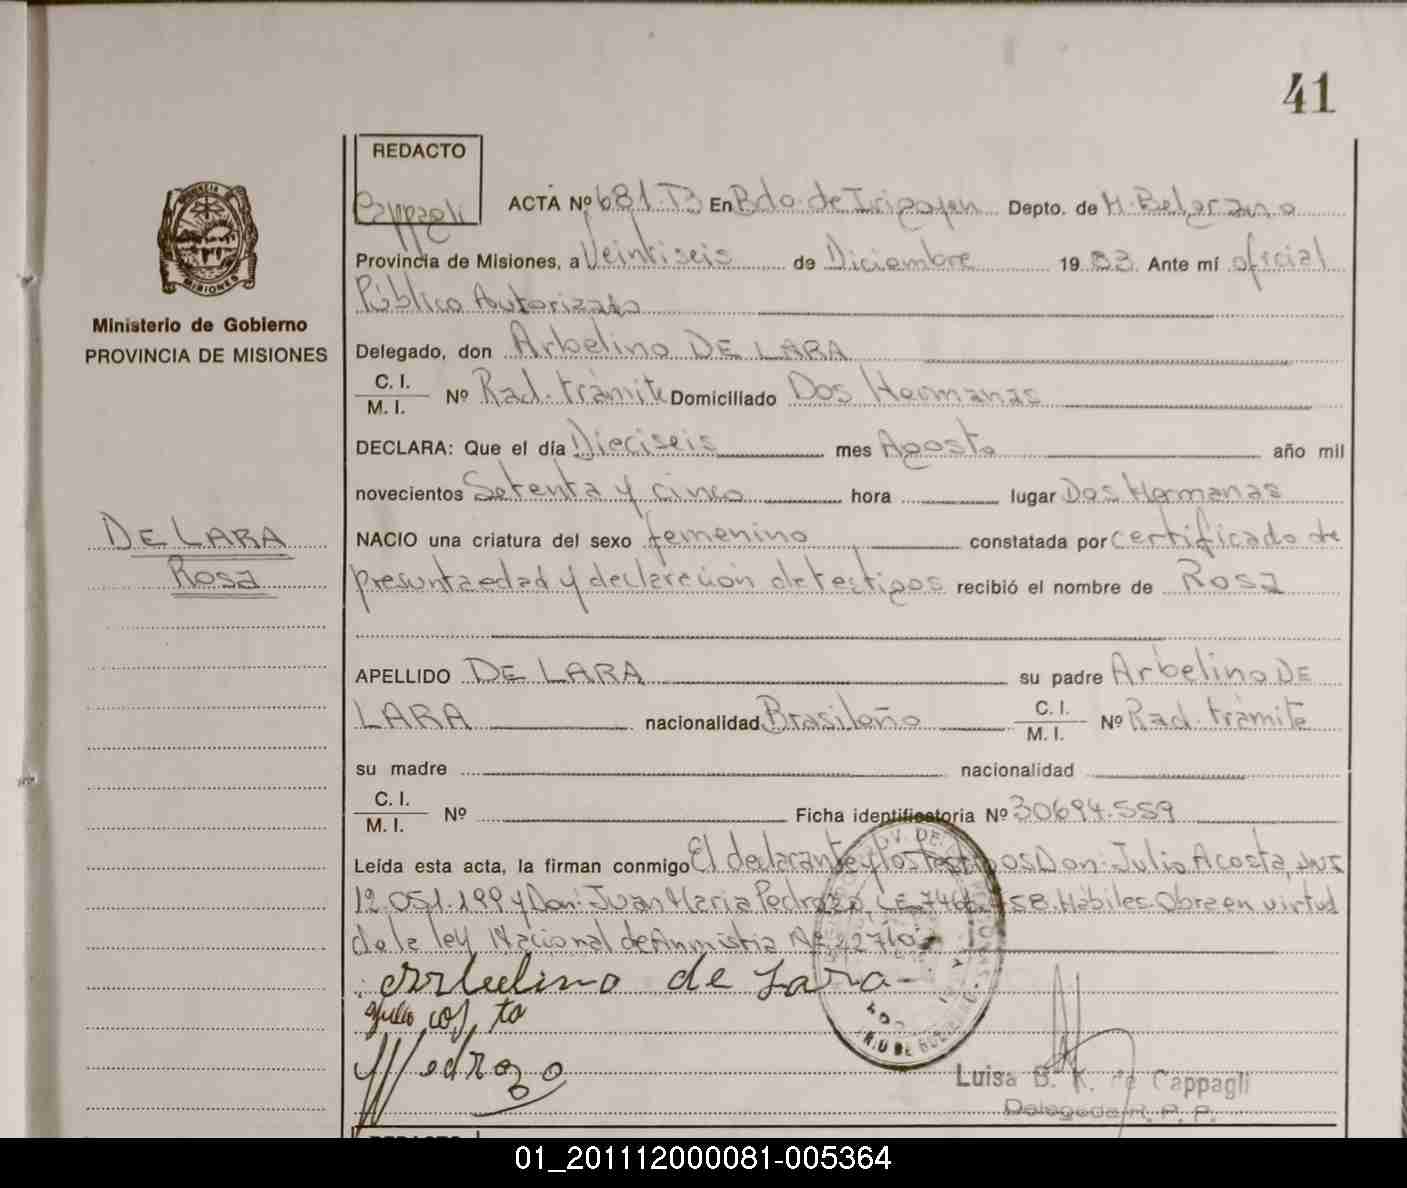 41
REDACTO
Cappagli
ACTA Nº 681. T3 En Bdo. de Irigoyen Depto. de H. Belgrano
Provincia de Misiones, a Veintiseis de Diciembre 19 83 Ante mí oficial
Público Autorizado
Delegado, don Arbelino DE LARA
C. I.
M. I. Nº Rad. trámite Domiciliado Dos Hermanas
DECLARA: Que el día Dieciseis mes Agosto año mil
novecientos Setenta y cinco hora lugar Dos Hermanas
NACIO una criatura del sexo femenino constatada por certificado de
presunta edad y declaración de testigos recibió el nombre de Rosa
APELLIDO DE LARA su padre Arbelino DE
LARA nacionalidad Brasileño C. I. M. I. Nº Rad. trámite
su madre nacionalidad
C. I.
M. I. Nº Ficha identificatoria Nº 30694.559
Leída esta acta, la firman conmigo El declarante y los testigos Don: Julio Acosta, DNI
12.051.199 y Don: Juan Maria Pedrozo, L.E. 58. Hábiles. Obra en virtud
de la ley Nacional de Amnistia Nº 22710.-
Arbelino de Lara
Julio
Pedrozo
Luisa B. K. de Cappagli
Delegada R. P. P.
PROVINCIA DE
MISIONES
Ministerio de Gobierno
PROVINCIA DE MISIONES
DE LARA
Rosa
REDACTO
01_201112000081-005364